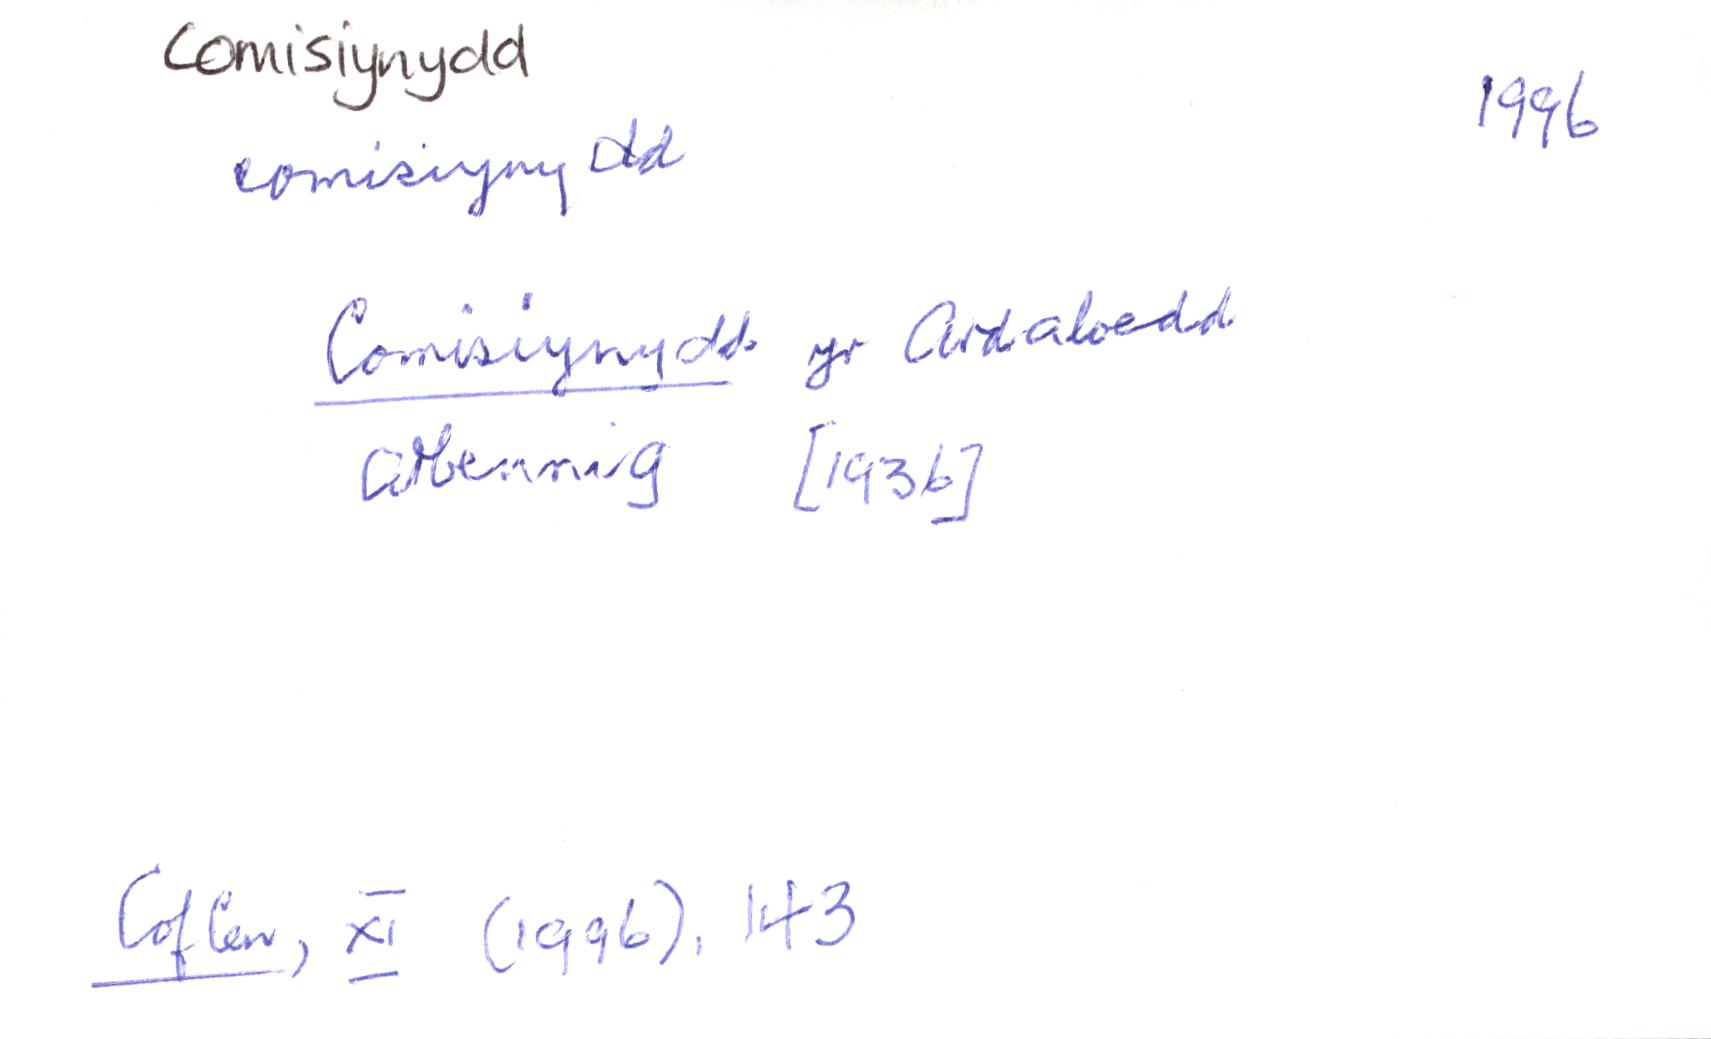 comisiynydd
1996
comisiynydd
Comisiynydd yr Ardaloedd
Arbennig [1936]
Cof Cen, XI (1996), 143